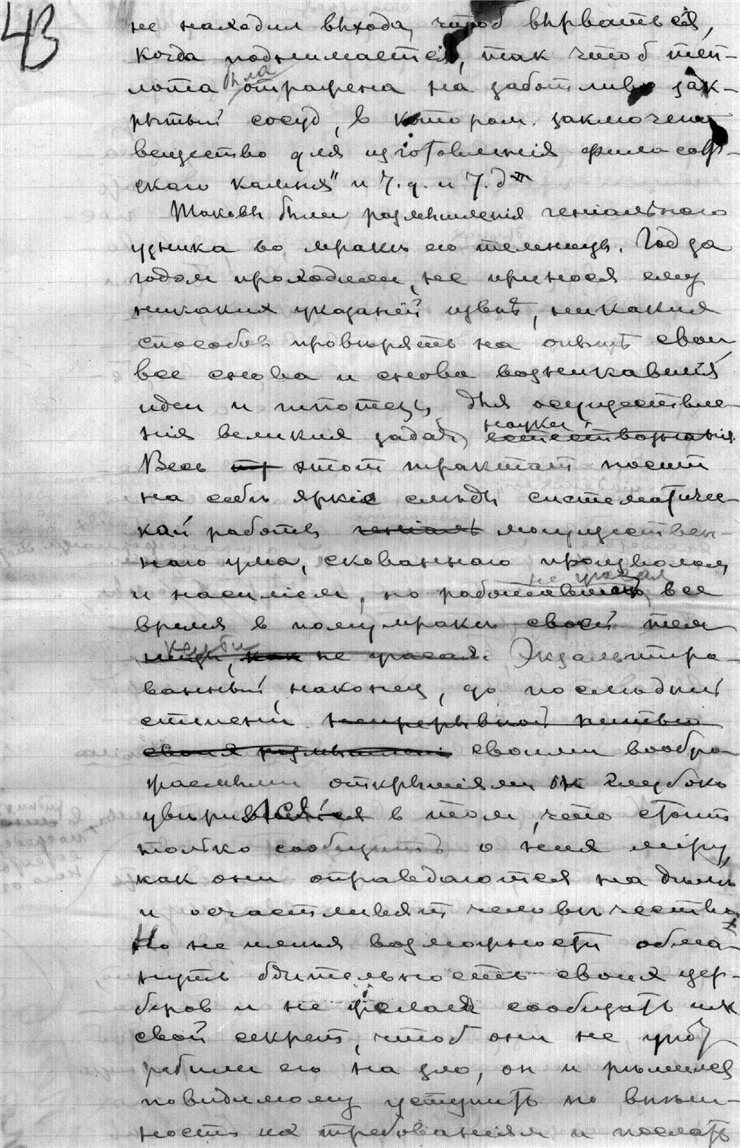 43
не находил выхода, чтоб вырваться,
когда поднимается, так чтоб теп-
лота была отражена на заботливо зак-
рытый сосуд, в котором заключено
вещество для изготовления фило соф-
скаго камня" и т. д. и т. д.
Таковы были размышления гениального
узника во мраке его темницы. Год за
годом проходили, не принося ему
никаких указаний извне, никакия
способов проверять на опыте свои
все снова и снова возникавшия
идеи и гипотезы, для осуществле-
ния великия задач науки естествознания.
Весь этот трактат носит
на себе яркие следы системати чес-
кой работы гениаль могуществен-
наго ума, скованнаго произволом
и насилием, но работавшаго не угасая все
время в полумраке своей тем
ницы, кельи как не угасая. Экзальтиро-
ванный, наконец, до последней
степени непрерывной нитью
своих размышлений своими вообра-
жаемыми открытиями он глубоко
уверился в том, что стоит
только сообщить о них миру,
как они оправдаются на деле
и осчастливят человечество.
Но не имея возможности обма-
нуть бдительность своих цер-
беров и не желая сообщать им
свой секрет, чтоб они не упот
ребили его на зло, он и решился
повидимому уступить по внеш-
ности их требованиям и послать